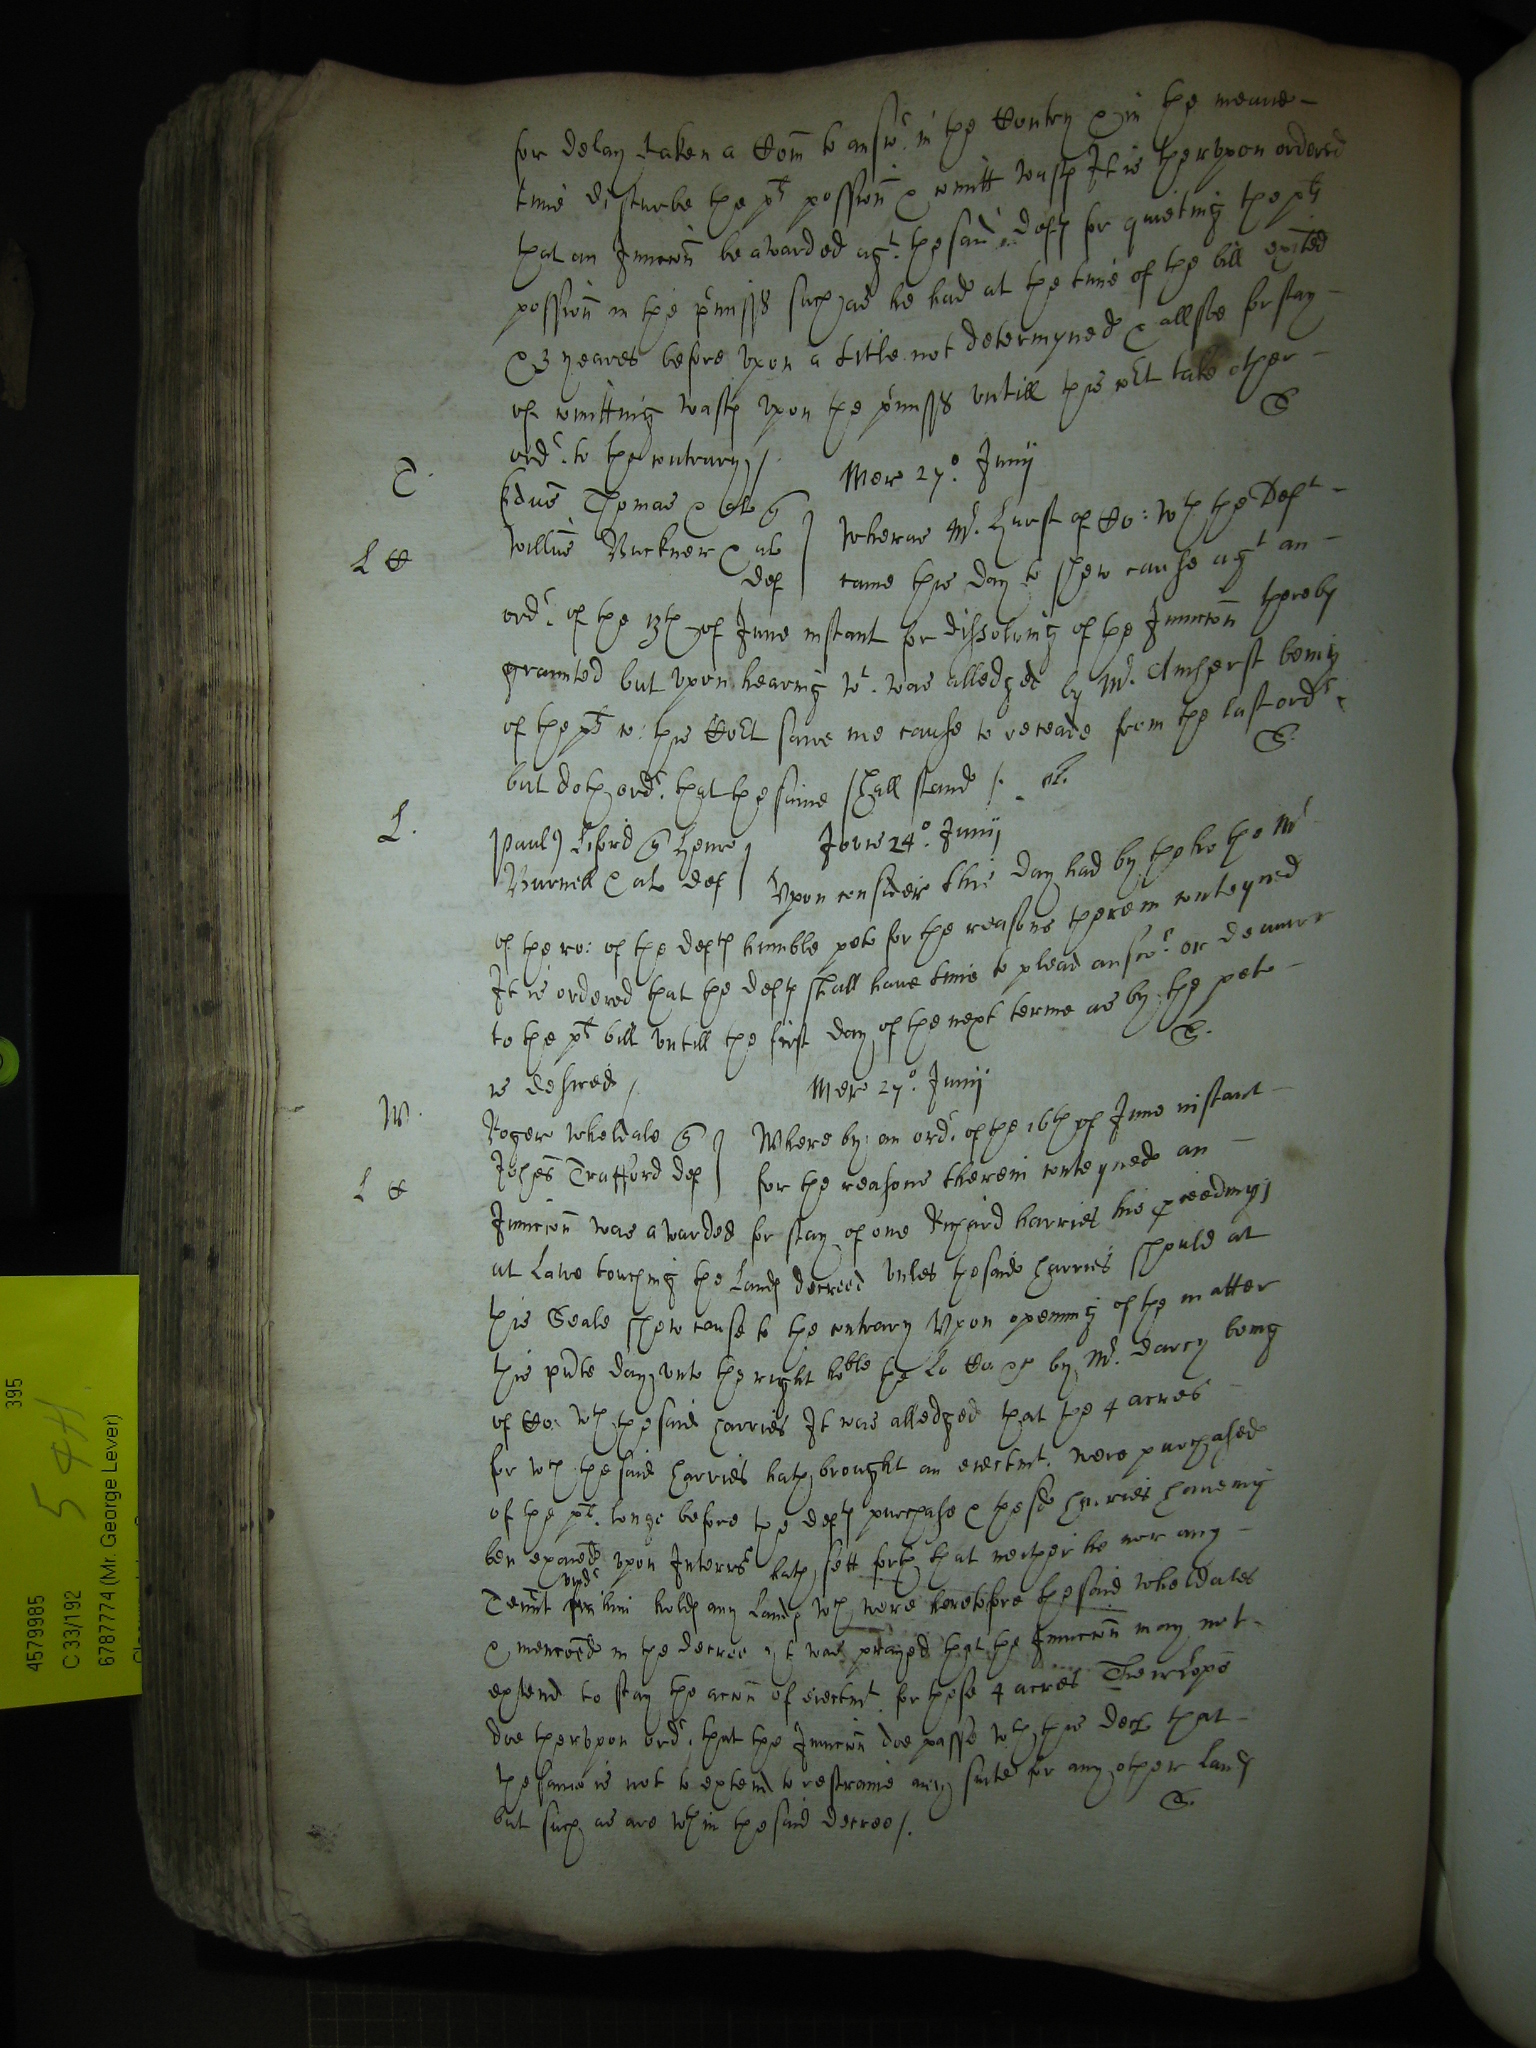 for delay taken a Com̃ to answr. in the Contry & in the meane
time disturbe the plts possion̄ & comitt wast It is therupon ordered
that an Iniuncc̃on be awarded agt. the said defts for quieting the plts
possion̄ in the pr̃misss such as he had at the time of the bill exited
& 3 yeares before upon a title not determyned & allsoe for stay
of comitting wast upon the pr̃misss untill this cõrt take other
ordr. to the contrary /.
S
Mer 27o. Junij
T.
Thomas & al qu
Willm̃s Buckner & al
def
L C
Wheras Mr. Hurst of Co: wth the Deft
came this day to shew cause agt an
ordr. of the 13th of June instant for dissolving of the Iniuncc̃on therby
graunted but upon hearing wt. was alledged by Mr. Amherst being
of the plts co: this Cõrt sawe noe cause to recede from the last ordr
but doth ordr. that the same shall stand /.
S.
Jovis 24o. Junij
L.
Paul9 qu Henr
Burnell & al def
Upon consider this day had by the the Mr
of the ro: of the defts humble peto for the reasons therein conteyned
It is ordered that the defts shall have time to plead answr. or demurr
to the plts bill untill the first day of the next terme as by the peto
is desired /
S.
Mer 27o. Junij
W.
Roger Wheldale qu
Johes Trafford def
L C
Where by an ordr. of the 16th of June instant
for the reasons therein conteyned an
Iniuncc̃on was awarded for stay of one Richard Harries his p̱ceedings
at Lawe touching the Lands decreed unles the said Harries should at
this Seale shew cause to the contrary Upon opening of the matter
this pñte day unto the right hoble the Lo Co: &c by Mr. Darcy being
of Co: wth the said Harries It was alledged that the 4 acres
for wch the said Harries hath brought an eiectmt. were purchased
of the plt. longe before the defts purchase & the sd Harries haveing
ben exaĩed upon Interrs hath sett forth that neither he nor any
Ten̄t undr him holds any Lands wch were heretofore the said Wheldales
& menc̃oed in the decree it was prayed that the Iniuncc̃on may not
extend to stay the acc̃on of eiectmt. for those 4 acres
doe therupon ordr. that the Iniuncc̃on doe passe wth this that
the same is not to extend to restraine any suite for any other Lands
but such as are wthin the said decree /.
S.
395
5 4H.
4579985
C 33/192
6787774 (Mr. George Lever)